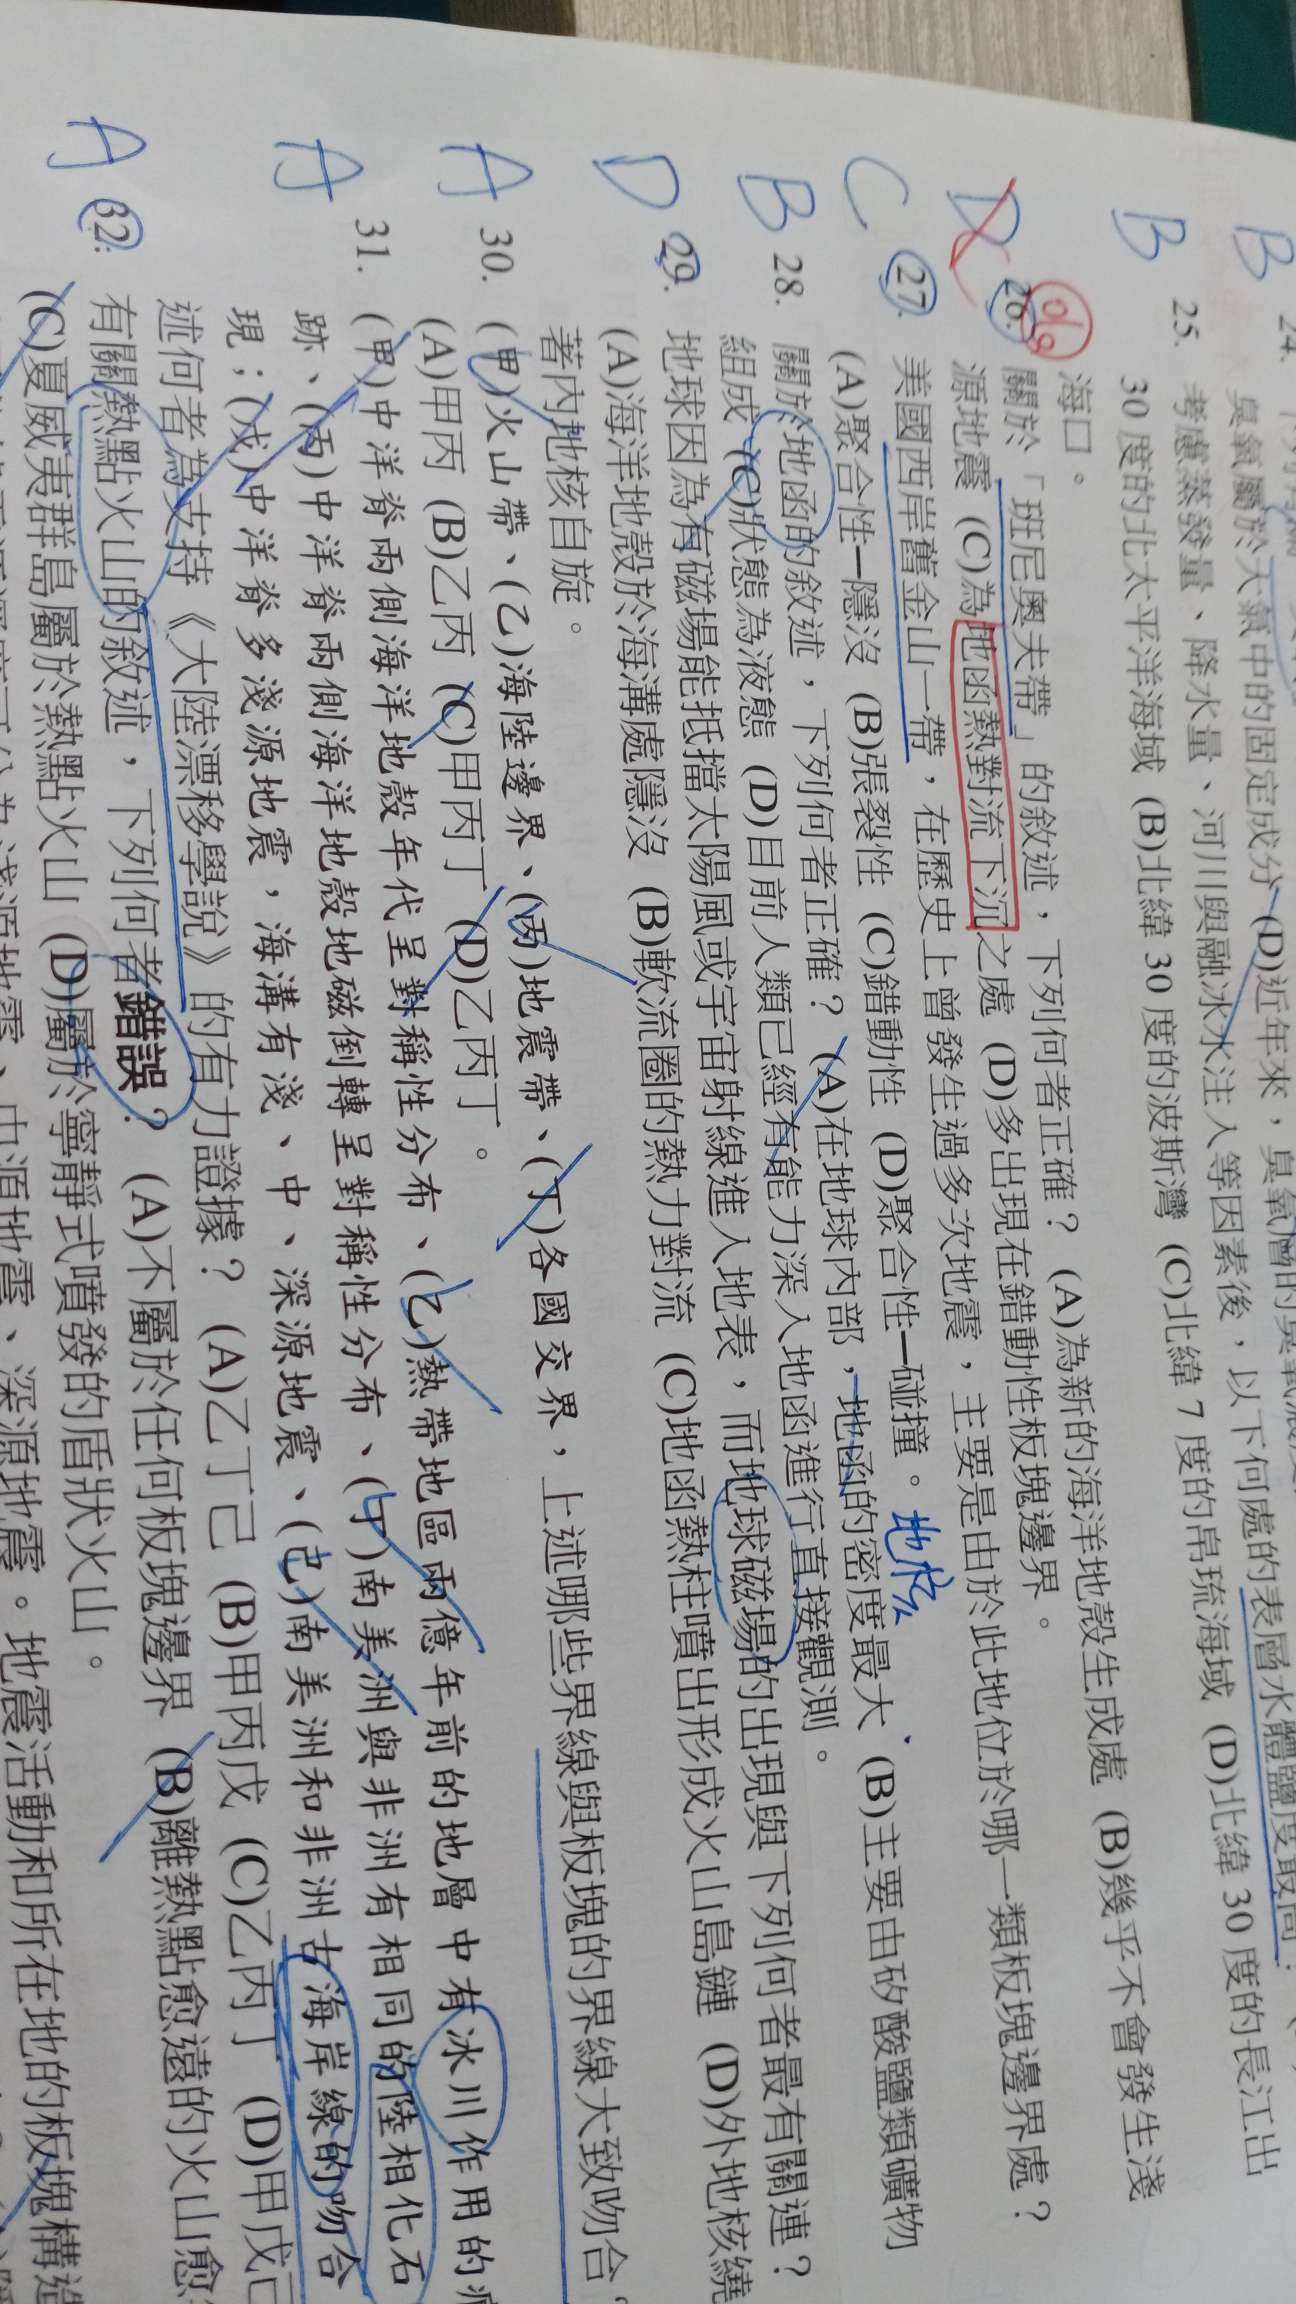 B 24.
臭氧屬於大氣中的固定成分 (D)近年來,臭氧層的臭氧濃度
B 25. 考慮蒸發量、降水量、河川與融冰水水注入等因素後,以下何處的表層水體鹽度最高?
30 度的北太平洋海域 (B)北緯 30 度的波斯灣 (C)北緯 7 度的帛琉海域 (D)北緯 30 度的長江出
海口。
D 26. 關於「班尼奧夫帶」的敘述,下列何者正確? (A)為新的海洋地殼生成處 (B)幾乎不會發生淺
源地震 (C)為地函熱對流下沉之處 (D)多出現在錯動性板塊邊界。
C 27. 美國西岸舊金山一帶,在歷史上曾發生過多次地震,主要是由於此地位於哪一類板塊邊界處?
(A)聚合性─隱沒 (B)張裂性 (C)錯動性 (D)聚合性─碰撞。
地核
B 28. 關於地函的敘述,下列何者正確? (A)在地球內部,地函的密度最大、(B)主要由矽酸鹽類礦物
組成 (C)狀態為液態 (D)目前人類已經有能力深入地函進行直接觀測。
D 29. 地球因為有磁場能抵擋太陽風或宇宙射線進入地表,而地球磁場的出現與下列何者最有關連?
(A)海洋地殼於海溝處隱沒 (B)軟流圈的熱力對流 (C)地函熱柱噴出形成火山島鏈 (D)外地核繞
著內地核自旋。
A 30. (甲)火山帶、(乙)海陸邊界、(丙)地震帶、(丁)各國交界,上述哪些界線與板塊的界線大致吻合?
(A)甲丙 (B)乙丙 (C)甲丙丁 (D)乙丙丁。
A 31. (甲)中洋脊兩側海洋地殼年代呈對稱性分布、(乙)熱帶地區兩億年前的地層中有冰川作用的痕
跡、(丙)中洋脊兩側海洋地殼地磁倒轉呈對稱性分布、(丁)南美洲與非洲有相同的陸相化石
現;(戊)中洋脊多淺源地震,海溝有淺、中、深源地震、(己)南美洲和非洲古海岸線的吻合
述何者為支持《大陸漂移學說》的有力證據? (A)乙丁己 (B)甲丙戊 (C)乙丙丁 (D)甲戊己
A 32. 有關熱點火山的敘述,下列何者錯誤? (A)不屬於任何板塊邊界 (B)離熱點愈遠的火山愈
(C)夏威夷群島屬於熱點火山 (D)屬於寧靜式噴發的盾狀火山。
淺源地震、中源地震、深源地震。地震活動和所在地的板塊構造